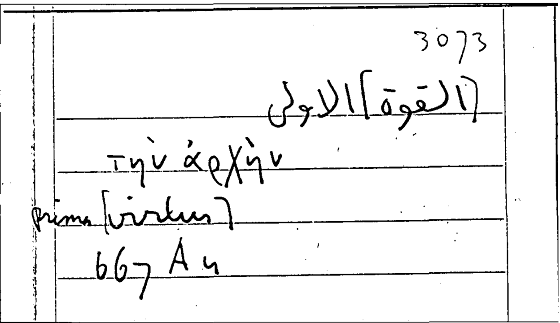 3073
[القوة] الاولى
τὴν ἀρχὴν
prima [virtus]
667 A 4